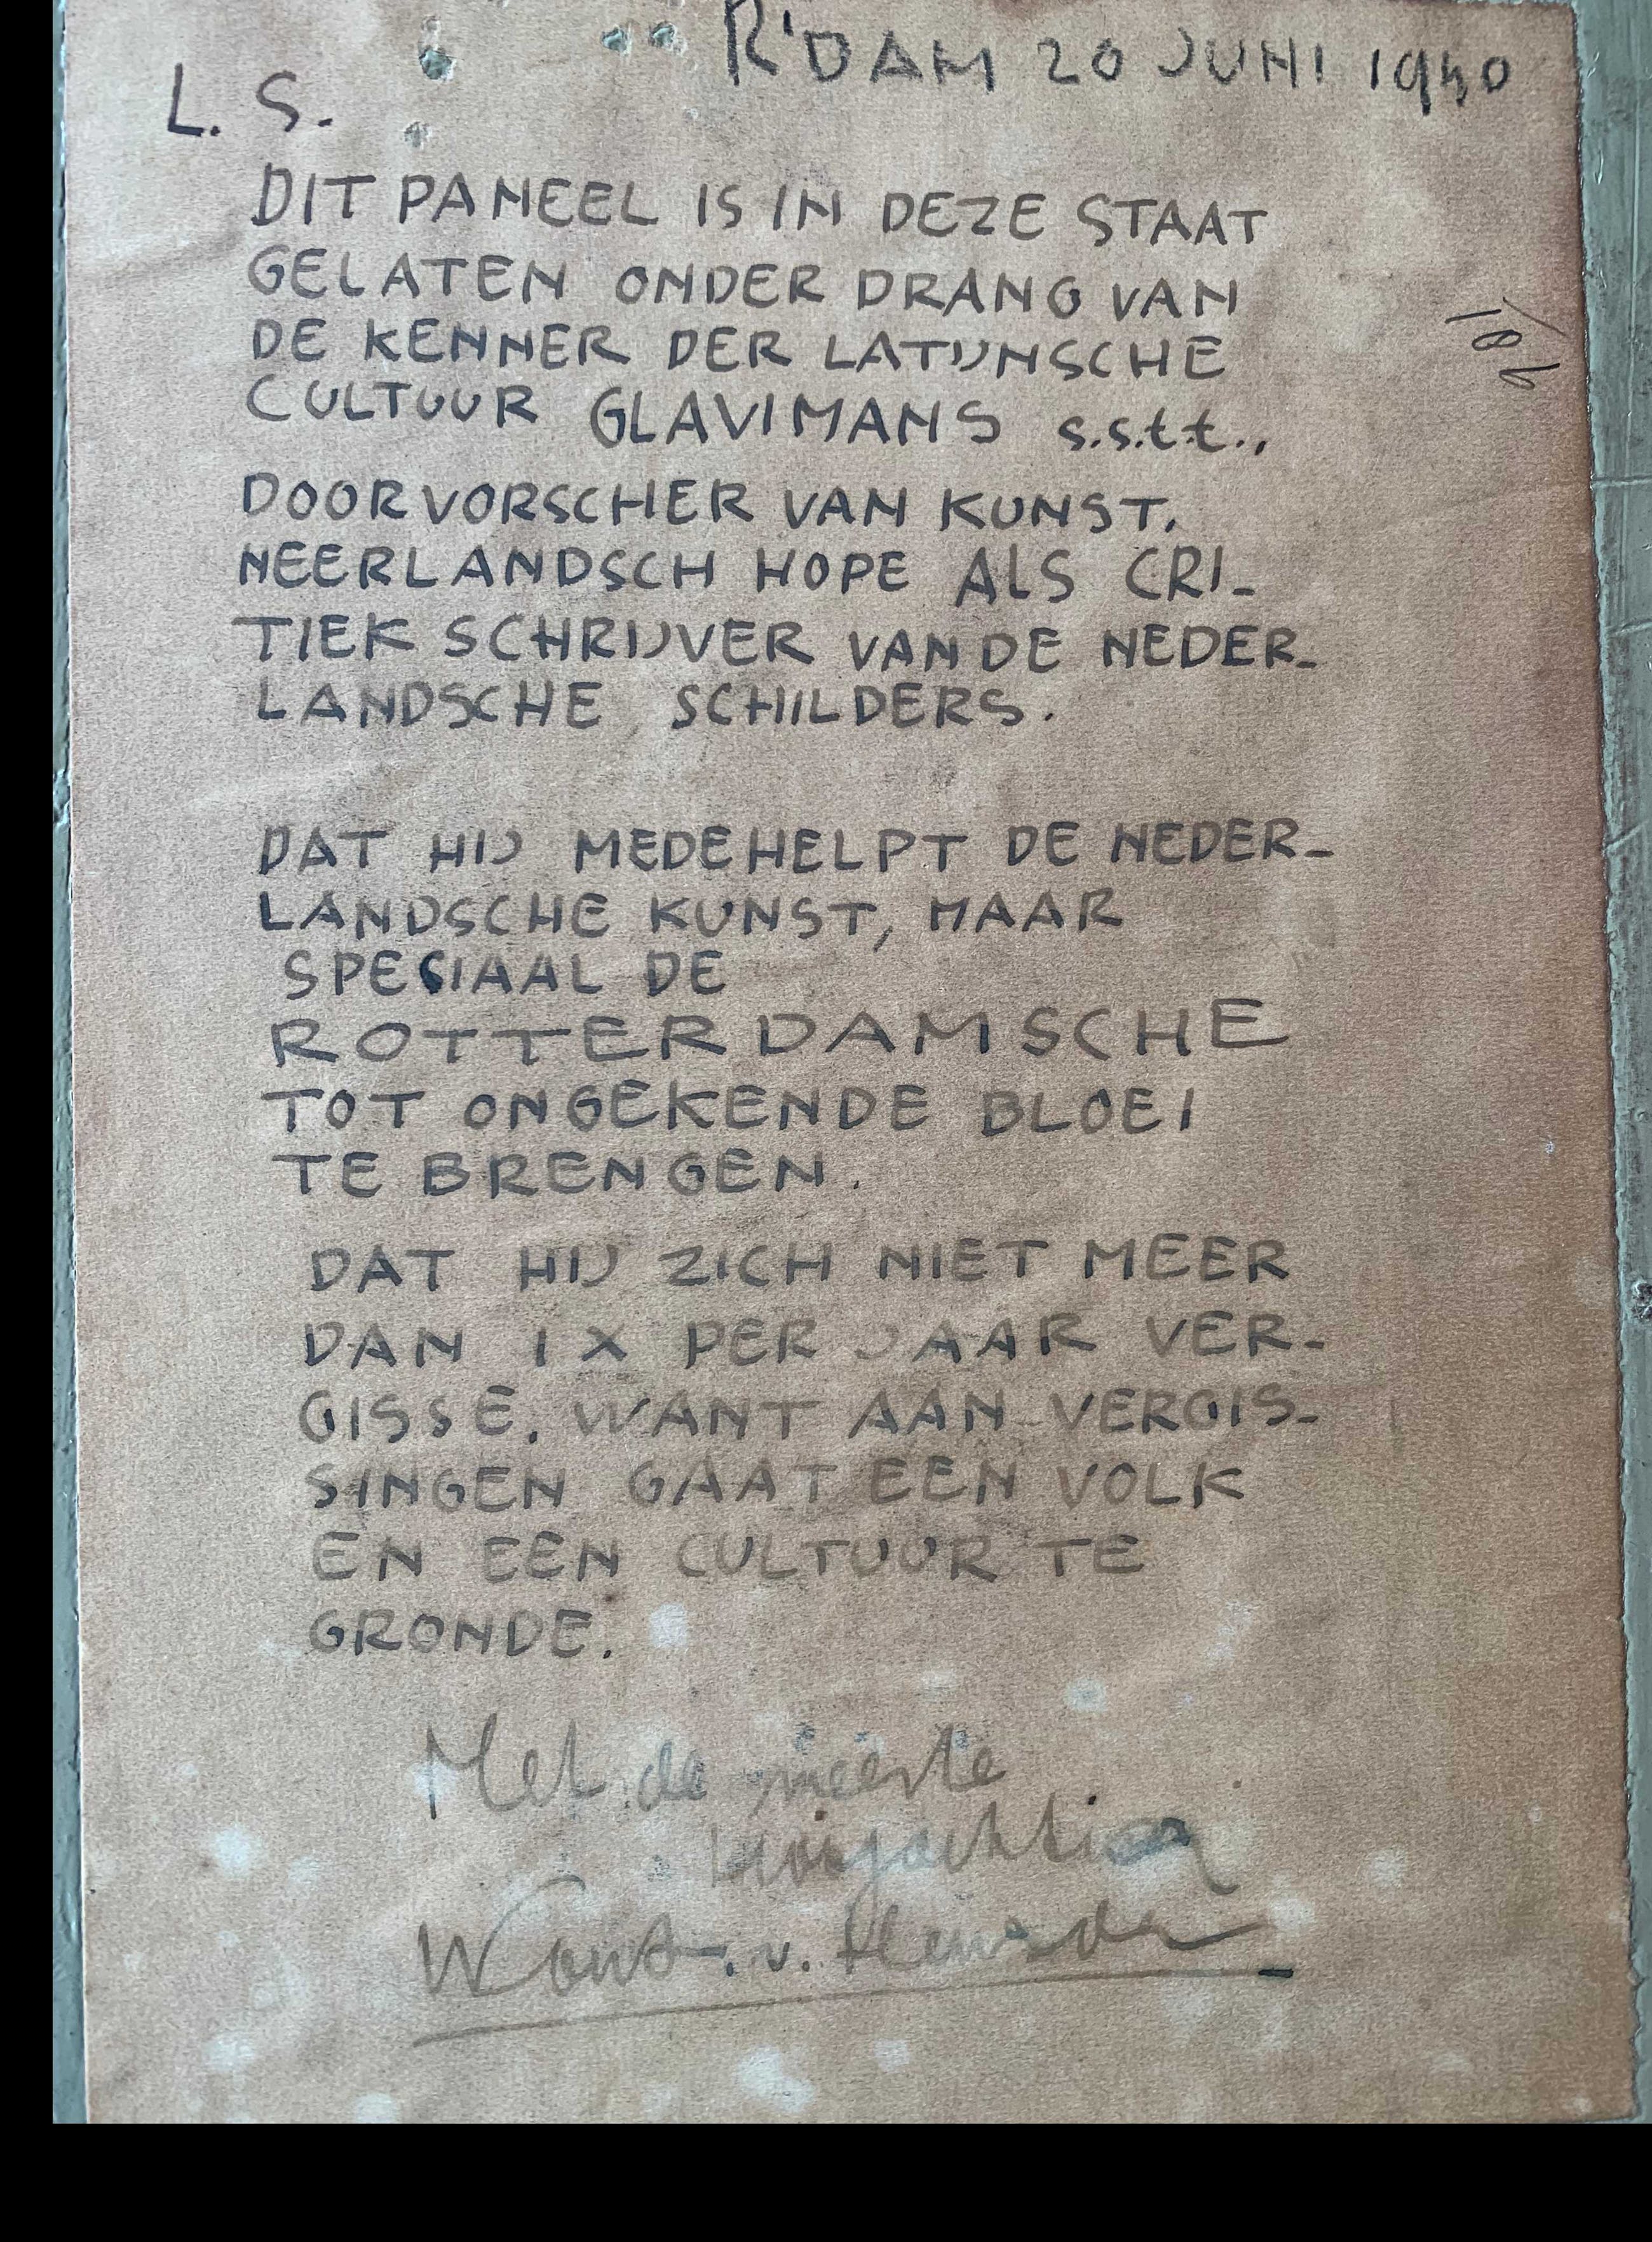 R'DAM 20 JUNI 1940
L. S.
DIT PANEEL IS IN DEZE STAAT
GELATEN ONDER DRANG VAN
DE KENNER DER LATIJNSCHE
CULTUUR GLAVIMANS s.s.t.t.,
DOORVORSCHER VAN KUNST.
NEERLANDSCH HOPE ALS CRI-
TIEK SCHRIJVER VAN DE NEDER-
LANDSCHE SCHILDERS.
DAT HIJ MEDEHELPT DE NEDER-
LANDSCHE KUNST, MAAR
SPECIAAL DE
ROTTERDAMSCHE
TOT ONGEKENDE BLOEI
TE BRENGEN.
DAT HIJ ZICH NIET MEER
DAN 1 X PER JAAR VER-
GISSE. WANT AAN VERGIS-
SINGEN GAAT EEN VOLK
EN EEN CULTUUR TE
GRONDE.
Met de meeste
hoogachting
Wout. v. Heusden